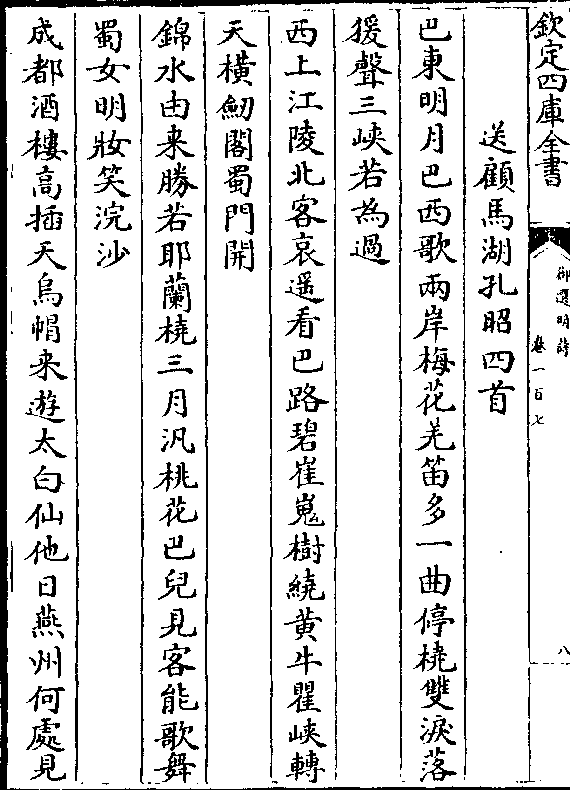 欽定四庫全書
御選明詩
卷一百七
八
送顧馬湖孔昭四首
巴東明月巴西歌兩岸梅花羌笛多一曲停橈雙淚落
猨聲三峽若為過
西上江陵北客哀遥看巴路碧崔嵬樹繞黃牛瞿峽轉
天橫劒閣蜀門開
錦水由来勝若耶蘭橈三月汎桃花巴兒見客能歌舞
蜀女明妝笑浣沙
成都酒樓高插天烏帽来遊太白仙他日燕州何處見